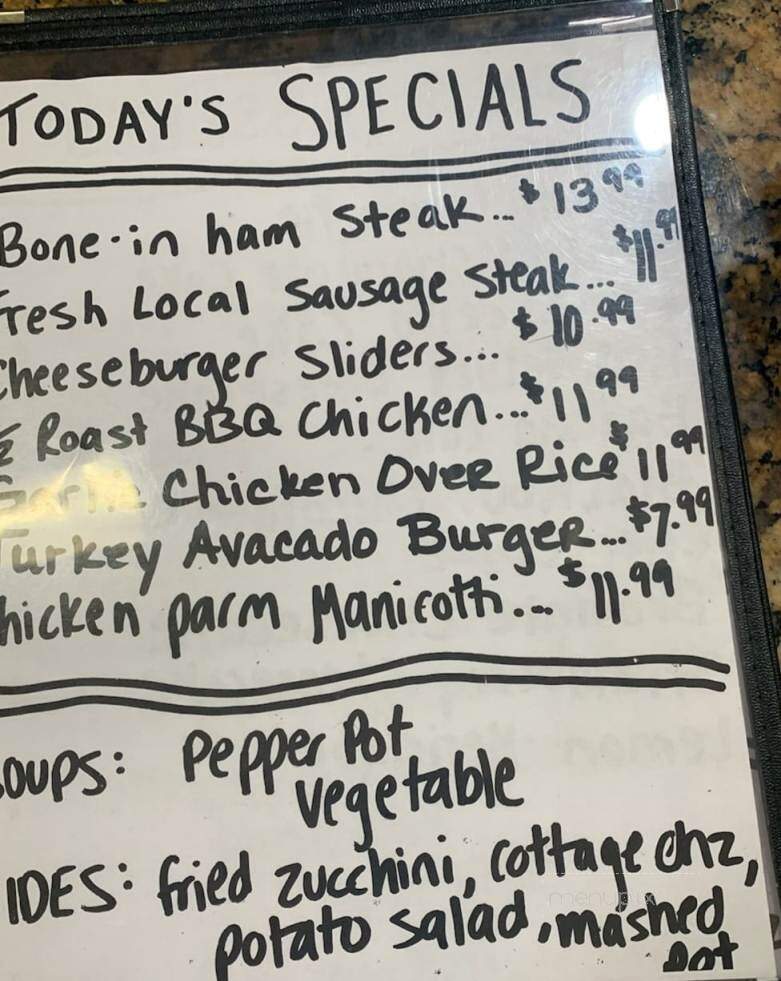 TODAY'S SPECIALS
Bone-in ham steak... $13.99
Fresh Local Sausage Steak... $11.99
Cheeseburger Sliders... $10.99
Roast BBQ Chicken... $11.99
Garlic Chicken Over Rice $11.99
Turkey Avacado Burger... $7.99
hicken parm Manicotti... $11.99
OUPS: Pepper Pot
vegetable
IDES: fried zucchini, cottage chz,
potato salad, mashed
pot
menupix